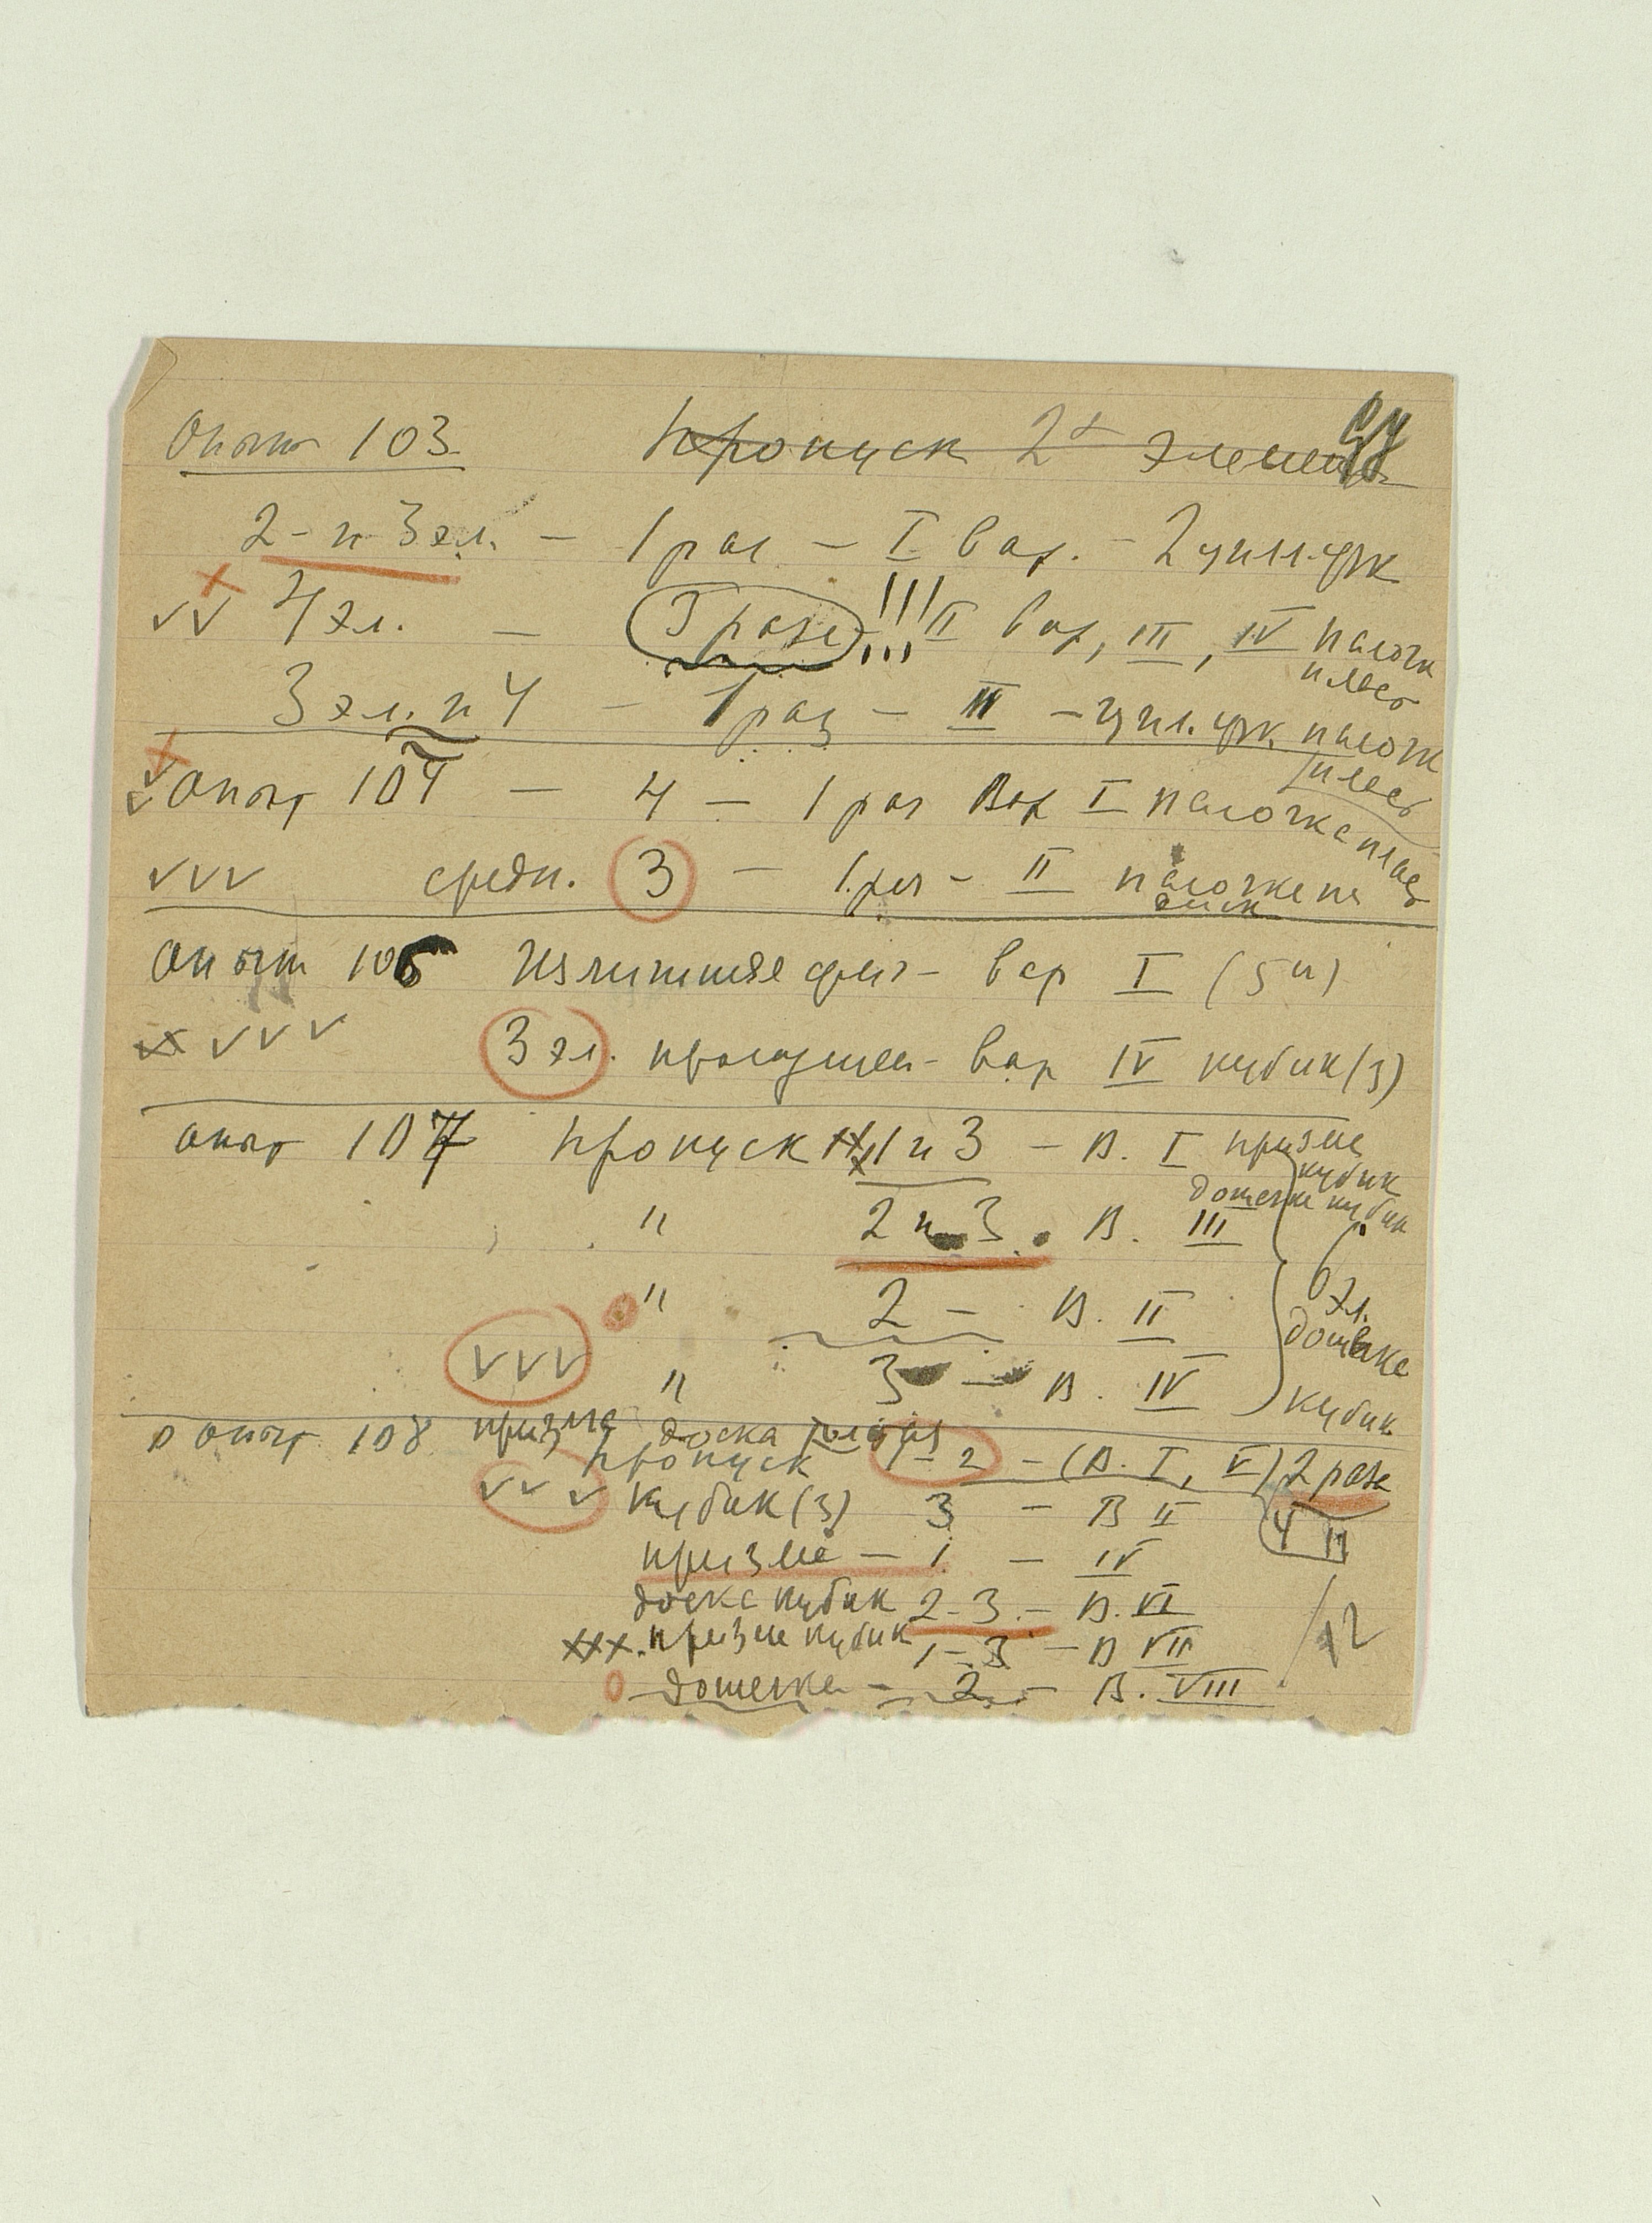 Опыт 103. Пропуск 2х элемент
2-и 3 эл. — 1 раз — I вар. — 2 цилиндрик
vv 4 эл. — 3 раза !!! II вар, III, IV палочк
3 эл. и 4 — 1 раз — II — цилиндрик палочк
Опыт 104 — 4 — 1 раз Вар I палочка
vvv средн. 3 — 1 раз — II палочке на
Опыт 106 Излишняя фиг — вар I (5й)
x vvv 3 эл. пропущен — вар IV кубик (3)
опыт 107 пропуск 1 и 3 — В. I призме
кубик
дощечке кубик
" 2 и 3. В. III
" 2 — В. II
эл.
дощечке
vvv " 3 — В. IV
кубик
опыт 108 призма доска
пропуск 1-2 — (В. I, V) 2 раза
vvv кубик (3) 3 — В II
4
призма — 1 — IV
доска кубик 2-3 — В. VI
12
xxx. призме кубик 1-3 — В VII
0 — дощечка — 2 — В. VIII